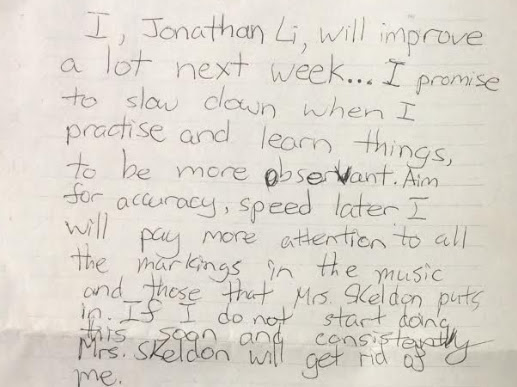 I, Jonathan Li, will improve
a lot next week... I promise
to slow down when I
practise and learn things,
to be more observant. Aim
for accuracy, speed later I
will pay more attention to all
the markings in the music
and those that Mrs. Skeldon puts
in. If I do not start doing
this soon and consistently
Mrs. Skeldon will get rid of
me.